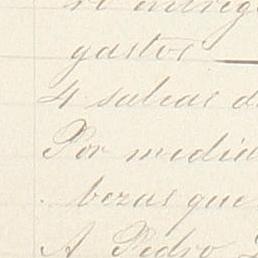 gastos
4 sabeas d
Por medid
bezas que
A Pedro